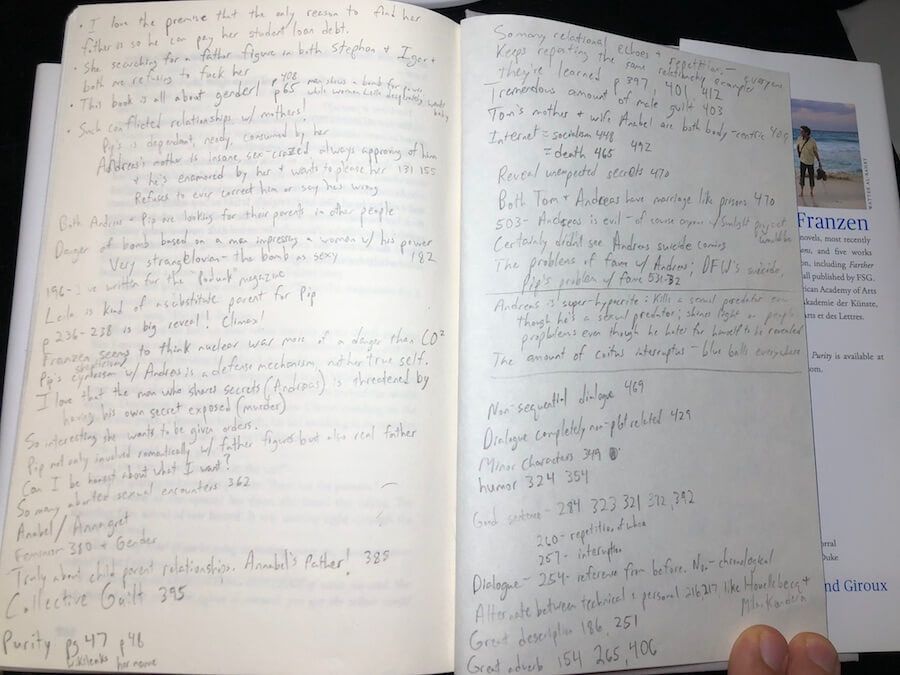 • I love the premise that the only reason to find her
father is so he can pay her student loan debt.
• She searching for a father figure in both Stephan + Igor +
both are refusing to fuck her
• This book is all about gender! p65 p408 man shows a bomb for power,
while women Leila desperately wants
baby
• Such conflicted relationships w/ mothers!
Pip's is dependant, needy, consumed by her
Andreas's mother is insane, sex-crazed always approving of him
+ he's enamored by her + wants to please her 131 155
Refuses to ever correct him or say he's wrong
Both Andreas + Pip are looking for their parents in other people
Danger of bomb based on a man impressing a woman w/ his power
Very strangelovian - the bomb as sexy 182
196 - I've written for the "Poduok" magazine
Leila is kind of a substitute parent for Pip
p 236-238 is big reveal! Climax!
Franzen seems to think nuclear war more of a danger than CO2
skepticism
Pip's cynicism w/ Andreas is a defense mechanism, not her true self.
I love that the man who shares secrets (Andreas) is threatened by
having his own secret exposed (murder)
So interesting she wants to be given orders.
Pip not only involved romantically w/ father figures but also real father
Can I be honest about what I want?
So many aborted sexual encounters 362
Anabel / Annagret
Feminism 380 + Gender
Truly about child parent relationships. Annabel's Father! 385
Collective Guilt 395
Purity pg 47 p48
wikileaks her name
So many relational echoes + repetition - everyone
Keeps repeating the same relationship examples
they're learned p 397, 401, 412
Tremendous amount of male guilt 403
Tom's mother + wife Anabel are both body-centric 409
Internet = socialism 448
= death 465 492
Reveal unexpected secrets 470
Both Tom + Andreas have marriage like prisons 470
503 - Andreas is evil - of course anyone w/ Sunlight project
would be
Certainly didn't see Andreas suicide coming
The problems of fame w/ Andreas; DFW's suicide,
Pip's problem w/ fame 531-32
Andreas is super-hypocrite: Kills a sexual predator even
though he's a sexual predator; shines light on people
propblems even though he hates for himself to be revealed
The amount of coitus interruptus - blue balls everywhere
Non-sequential dialogue 469
Dialogue completely non-plot related 429
Minor characters 349
humor 324 354
Good sentence - 284 323 321 372, 392
260 - repetition of when
257 - interruption
Dialogue - 254 - reference from before. Non-chronological
Alternate between technical + personal 216, 217 like Houellebecq +
Milan Kundera
Great description 186, 251
Great adverb 154 265, 406
WALTER ALVAREZ
Franzen
novels, most recently
ons, and five works
on, including Farther
all published by FSG.
rican Academy of Arts
kademie der Künste,
Arts et des Lettres.
Purity is available at
om.
orral
Duke
nd Giroux